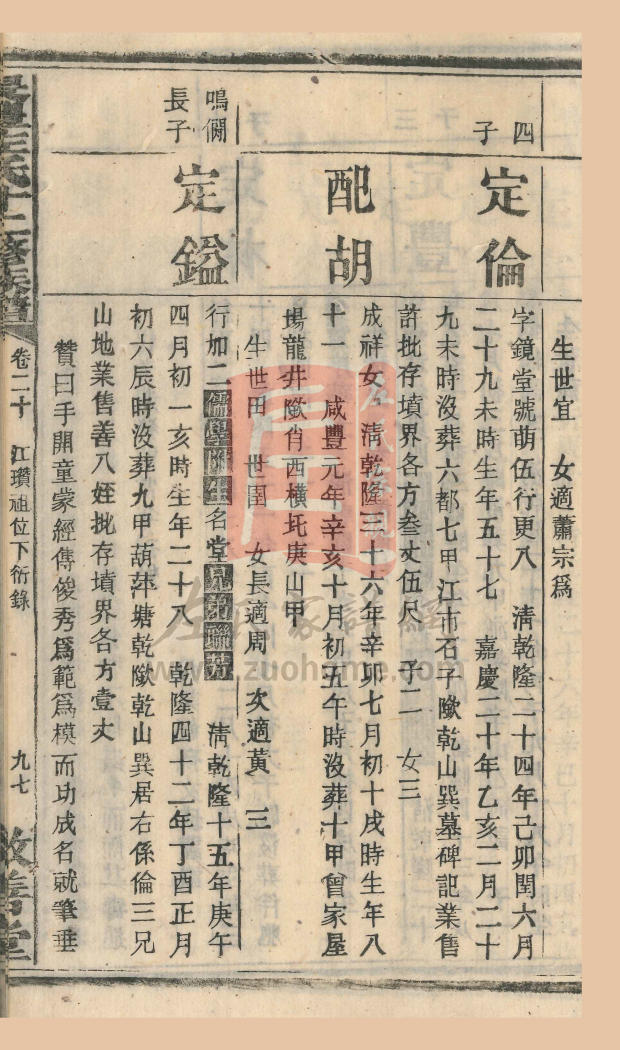 生世宜　女適蕭宗爲
四
子
定倫
字鏡堂號萌伍行更八　清乾隆二十四年己卯閏六月
二十九未時生年五十七　嘉慶二十年乙亥二月二十
九未時沒葬六都七甲江市石子𡑞乾山巽墓碑記業售
許批存墳界各方叁丈伍尺　子二　女三
配胡
成祥女　清乾隆三十六年辛卯七月初十戌時生年八
十一　咸豐元年辛亥十月初五午時沒葬十甲曾家屋
場龍井𡑞肖西橫圫庚山甲
生世田　世圍　女長適周　次適黃　三
鳴僩
長子
定鎰
行加二儒學附生名堂兄弟聯芳　清乾隆十五年庚午
四月初一亥時生年二十八　乾隆四十二年丁酉正月
初六辰時沒葬九甲葫萍塘乾𡑞乾山巽居右係倫三兄
山地業售善八姪批存墳界各方壹丈
贊曰手開童蒙經傳俊秀爲範爲模而功成名就筆垂
左氏十二修族譜
卷二十　江瓚祖位下衍錄
九七
敦善堂
左氏家譜網
www.zuohome.com